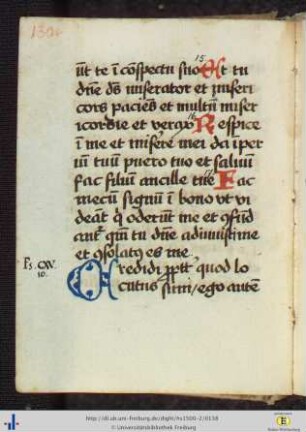 139r
15
ūt te ī cōspectu suo Et tu
dn̄e ds̄ miserator et miseri
cors pacies̄ et multū miser
icordie et verax 16 Respice
ī me et misere mei da īper
iū tuū puero tuo et saluū
fac filiū ancille tue 17 Fac
mecū signū ī bono ut vi
deāt q̄ oderūt me et cōfūd
ant̄ qm̄ tu dn̄e adiuuistime
et cōsolatꝰ es me
Ps. CXV.
10.
Credidi ꝓpt̄ quod lo
cutus sum / ego autē
http://dl.ub.uni-freiburg.de/diglit/hs1500-2/0138
© Universitätsbibliothek Freiburg